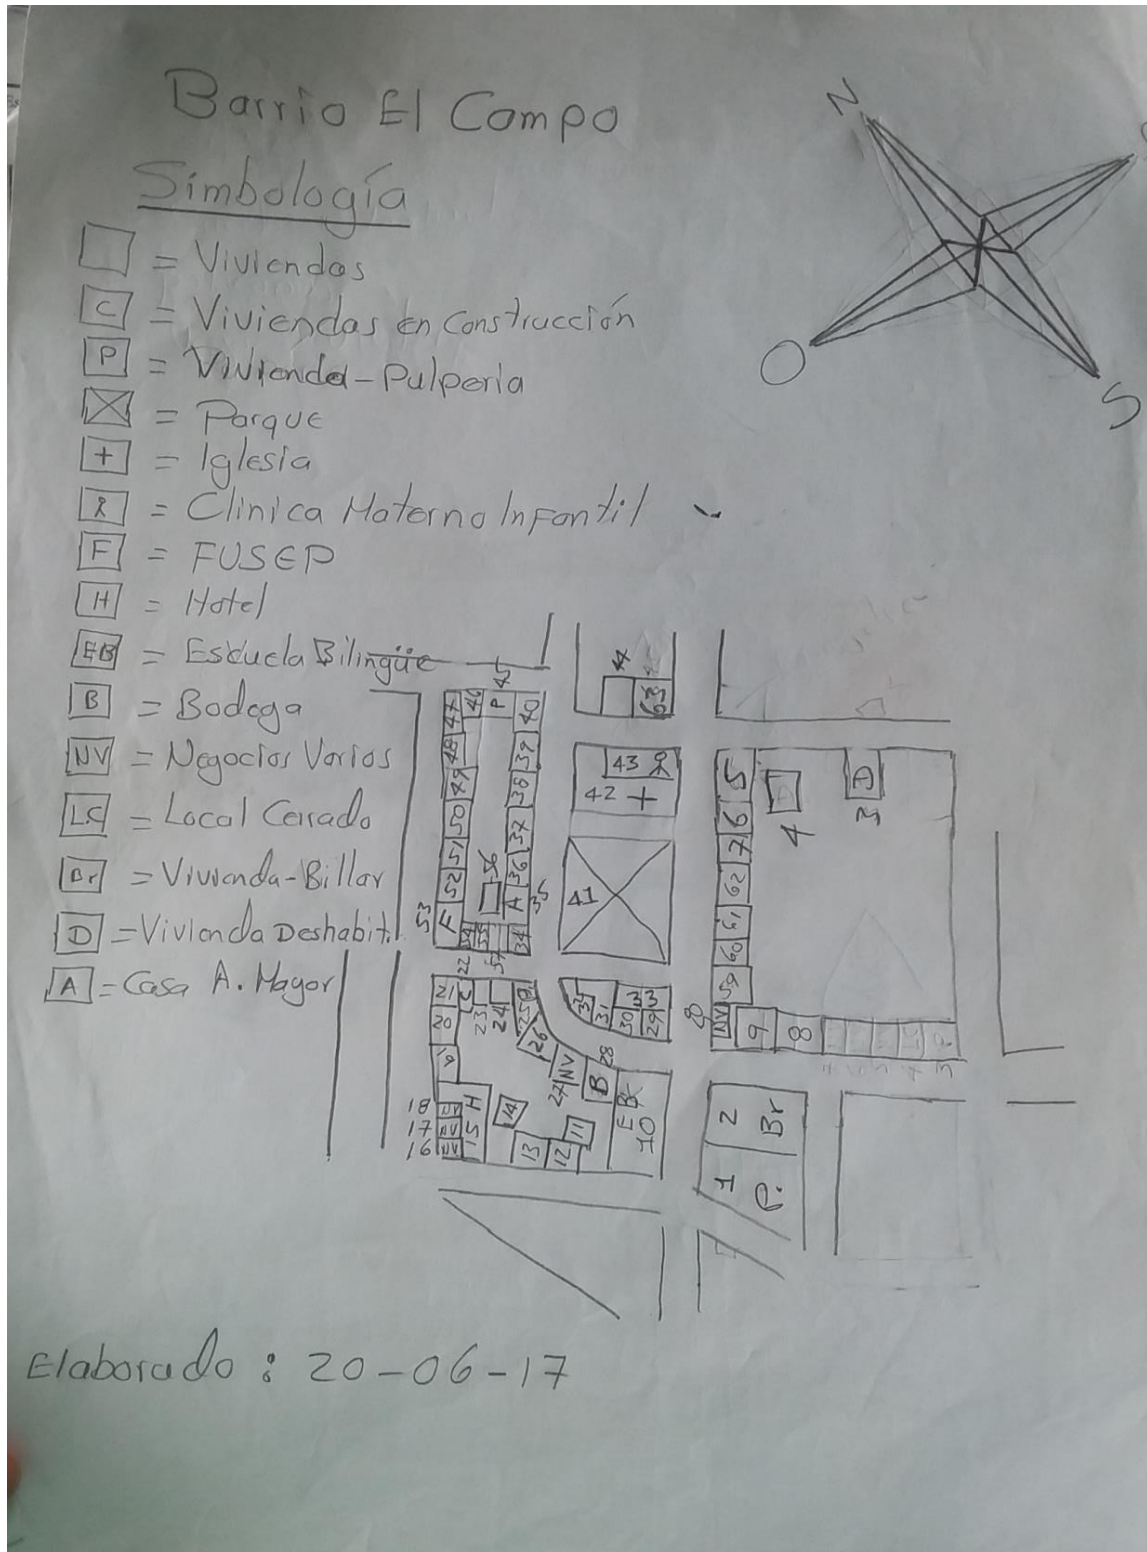 Barrio El Campo
Simbología
= Viviendas
C = Viviendas en Construcción
P = Vivienda-Pulperia
= Parque
+ = Iglesia
= Clinica Materno Infantil
F = FUSEP
H = Hotel
EB = Escuela Bilingüe
B = Bodega
NV = Negocios Varios
LC = Local Cerrado
Br = Vivienda-Billar
D = Vivienda Deshabit.
A = Casa A. Mayor
N
O
S
44
63
45
47 46 P 40
48 39
49 38
50 37
51 36
52 56 A 35
53 F 55 34
43
42 +
41
5
6
7
62
61
60
59
NV
9
8
4
D
3
22
21 C
20 23 24
26
NV 27
28
B
31
30
33
29
18
17
16
H
15
14
13
12
11
EB
10
2 Br
1 P.
Elaborado: 20-06-17